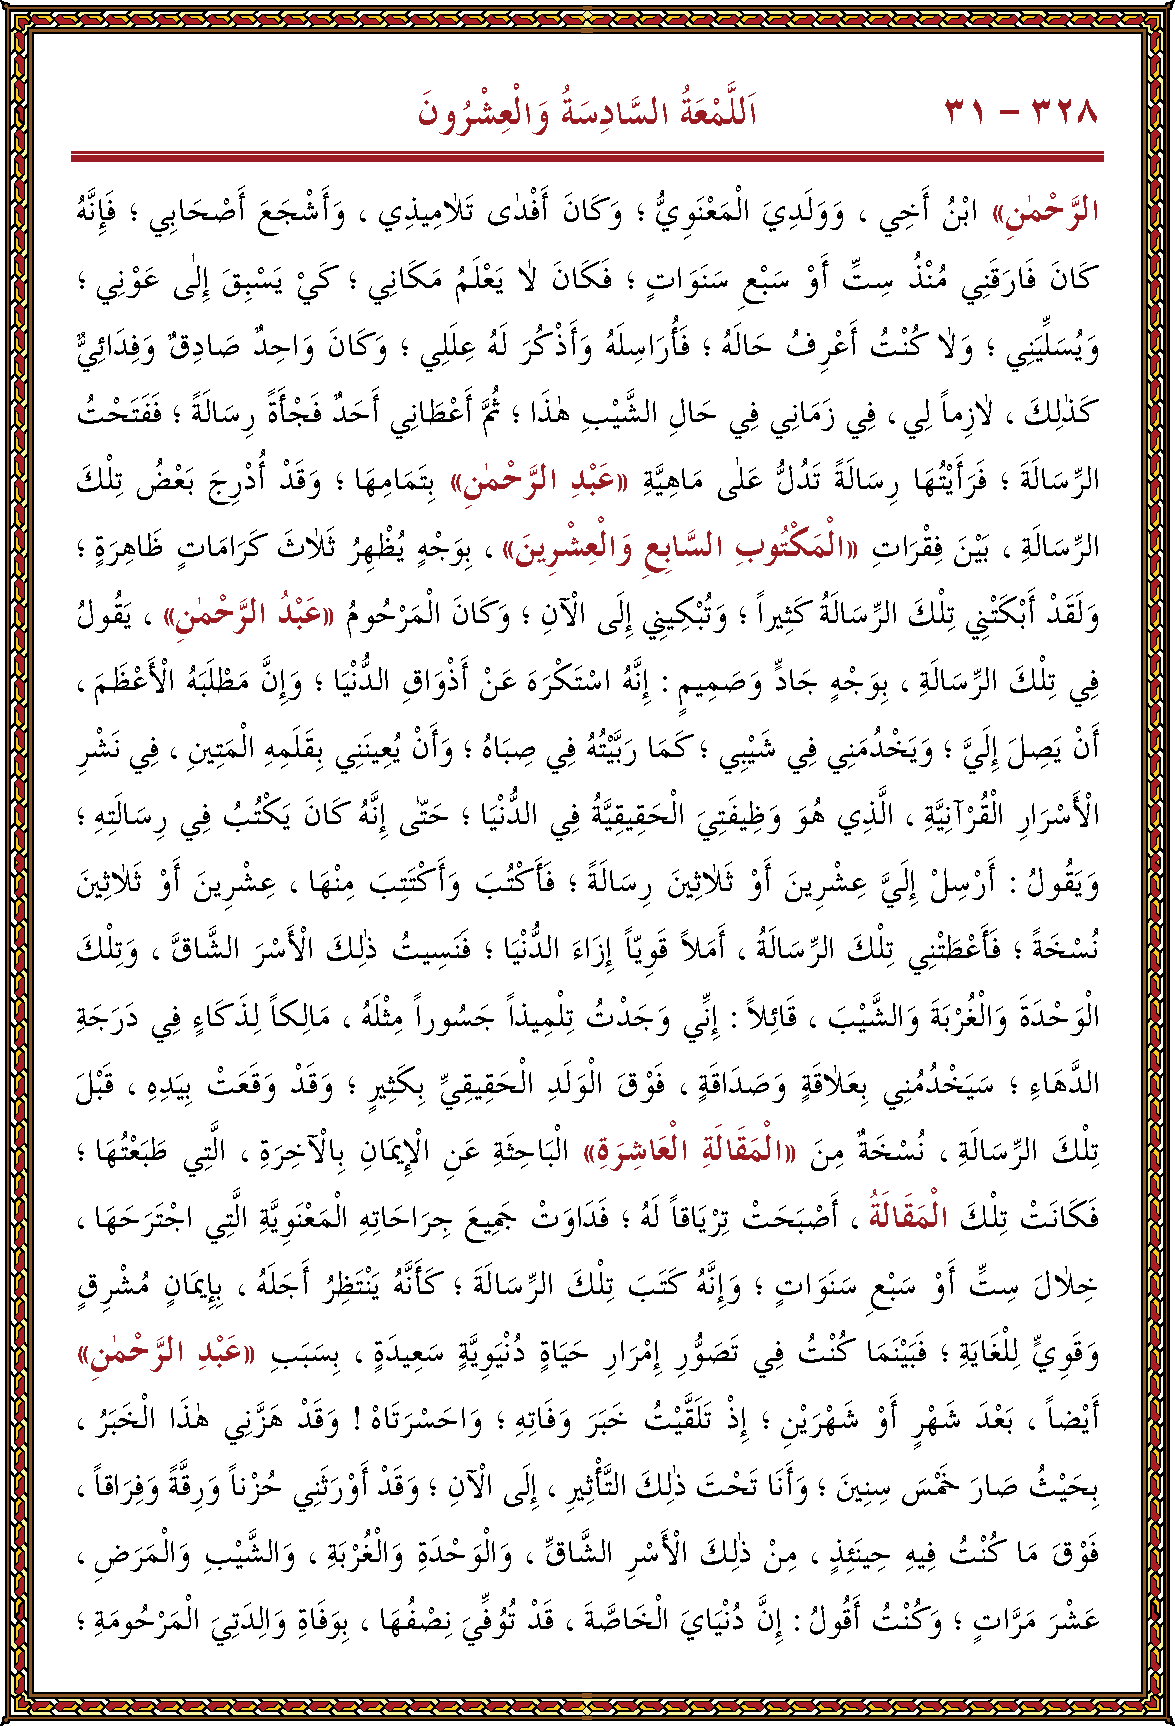 ٣٢٨ – ٣١ اَللَّمْعَةُ السَّادِسَةُ وَالْعِشْرُونَ
الرَّحْمٰنِ» ابْنُ أَخِي ، وَوَلَدِيَ الْمَعْنَوِيُّ ؛ وَكَانَ أَفْدٰى تَلاٰمِيذِي ، وَأَشْجَعَ أَصْحَابِي ؛ فَإِنَّهُ
كَانَ فَارَقَنِي مُنْذُ سِتِّ أَوْ سَبْعِ سَنَوَاتٍ ؛ فَكَانَ لاٰ يَعْلَمُ مَكَانِي ؛ كَيْ يَسْبِقَ إِلٰى عَوْنِي ؛
وَيُسَلِّيَنِي ؛ وَلاٰ كُنْتُ أَعْرِفُ حَالَهُ ؛ فَأُرَاسِلَهُ وَأَذْكُرَ لَهُ عِلَلِي ؛ وَكَانَ وَاحِدٌ صَادِقٌ وَفِدَائِيٌّ
كَذٰلِكَ ، لاٰزِماً لِي ، فِي زَمَانِي فِي حَالِ الشَّيْبِ هٰذَا ؛ ثُمَّ أَعْطَانِي أَحَدٌ فَجْأَةً رِسَالَةً ؛ فَفَتَحْتُ
الرِّسَالَةَ ؛ فَرَأَيْتُهَا رِسَالَةً تَدُلُّ عَلٰى مَاهِيَّةِ «عَبْدِ الرَّحْمٰنِ» بِتَمَامِهَا ؛ وَقَدْ أُدْرِجَ بَعْضُ تِلْكَ
الرِّسَالَةِ ، بَيْنَ فِقْرَاتِ «الْمَكْتُوبِ السَّابِعِ وَالْعِشْرِينَ» ، بِوَجْهٍ يُظْهِرُ ثَلاٰثَ كَرَامَاتٍ ظَاهِرَةٍ ؛
وَلَقَدْ أَبْكَتْنِي تِلْكَ الرِّسَالَةُ كَثِيراً ؛ وَتُبْكِينِي إِلَى الْآنِ ؛ وَكَانَ الْمَرْحُومُ «عَبْدُ الرَّحْمٰنِ» ، يَقُولُ
فِي تِلْكَ الرِّسَالَةِ ، بِوَجْهٍ جَادٍّ وَصَمِيمٍ : إِنَّهُ اسْتَكْرَهَ عَنْ أَذْوَاقِ الدُّنْيَا ؛ وَإِنَّ مَطْلَبَهُ الْأَعْظَمَ ،
أَنْ يَصِلَ إِلَيَّ ؛ وَيَخْدُمَنِي فِي شَيْبِي ؛ كَمَا رَبَّيْتُهُ فِي صِبَاهُ ؛ وَأَنْ يُعِينَنِي بِقَلَمِهِ الْمَتِينِ ، فِي نَشْرِ
الْأَسْرَارِ الْقُرْآنِيَّةِ ، الَّذِي هُوَ وَظِيفَتِيَ الْحَقِيقِيَّةُ فِي الدُّنْيَا ؛ حَتّٰى إِنَّهُ كَانَ يَكْتُبُ فِي رِسَالَتِهِ ؛
وَيَقُولُ : أَرْسِلْ إِلَيَّ عِشْرِينَ أَوْ ثَلاٰثِينَ رِسَالَةً ؛ فَأَكْتُبَ وَأَكْتِبَ مِنْهَا ، عِشْرِينَ أَوْ ثَلاٰثِينَ
نُسْخَةً ؛ فَأَعْطَتْنِي تِلْكَ الرِّسَالَةُ ، أَمَلاً قَوِيّاً إِزَاءَ الدُّنْيَا ؛ فَنَسِيتُ ذٰلِكَ الْأَسْرَ الشَّاقَّ ، وَتِلْكَ
الْوَحْدَةَ وَالْغُرْبَةَ وَالشَّيْبَ ، قَائِلاً : إِنِّي وَجَدْتُ تِلْمِيذاً جَسُوراً مِثْلَهُ ، مَالِكاً لِذَكَاءٍ فِي دَرَجَةِ
الدَّهَاءِ ؛ سَيَخْدُمُنِي بِعَلاٰقَةٍ وَصَدَاقَةٍ ، فَوْقَ الْوَلَدِ الْحَقِيقِيِّ بِكَثِيرٍ ؛ وَقَدْ وَقَعَتْ بِيَدِهِ ، قَبْلَ
تِلْكَ الرِّسَالَةِ ، نُسْخَةٌ مِنَ «الْمَقَالَةِ الْعَاشِرَةِ» الْبَاحِثَةِ عَنِ الْإِيمَانِ بِالْآخِرَةِ ، الَّتِي طَبَعْتُهَا ؛
فَكَانَتْ تِلْكَ الْمَقَالَةُ ، أَصْبَحَتْ تِرْيَاقاً لَهُ ؛ فَدَاوَتْ جَمِيعَ جِرَاحَاتِهِ الْمَعْنَوِيَّةِ الَّتِي اجْتَرَحَهَا ،
خِلاٰلَ سِتِّ أَوْ سَبْعِ سَنَوَاتٍ ؛ وَإِنَّهُ كَتَبَ تِلْكَ الرِّسَالَةَ ؛ كَأَنَّهُ يَنْتَظِرُ أَجَلَهُ ، بِإِيمَانٍ مُشْرِقٍ
وَقَوِيٍّ لِلْغَايَةِ ؛ فَبَيْنَمَا كُنْتُ فِي تَصَوُّرِ إِمْرَارِ حَيَاةٍ دُنْيَوِيَّةٍ سَعِيدَةٍ ، بِسَبَبِ «عَبْدِ الرَّحْمٰنِ»
أَيْضاً ، بَعْدَ شَهْرٍ أَوْ شَهْرَيْنِ ؛ إِذْ تَلَقَّيْتُ خَبَرَ وَفَاتِهِ ؛ وَاحَسْرَتَاهْ ! وَقَدْ هَزَّنِي هٰذَا الْخَبَرُ ،
بِحَيْثُ صَارَ خَمْسَ سِنِينَ ؛ وَأَنَا تَحْتَ ذٰلِكَ التَّأْثِيرِ ، إِلَى الْآنِ ؛ وَقَدْ أَوْرَثَنِي حُزْناً وَرِقَّةً وَفِرَاقاً ،
فَوْقَ مَا كُنْتُ فِيهِ حِينَئِذٍ ، مِنْ ذٰلِكَ الْأَسْرِ الشَّاقِّ ، وَالْوَحْدَةِ وَالْغُرْبَةِ ، وَالشَّيْبِ وَالْمَرَضِ ،
عَشْرَ مَرَّاتٍ ؛ وَكُنْتُ أَقُولُ : إِنَّ دُنْيَايَ الْخَاصَّةَ ، قَدْ تُوُفِّيَ نِصْفُهَا ، بِوَفَاةِ وَالِدَتِيَ الْمَرْحُومَةِ ؛